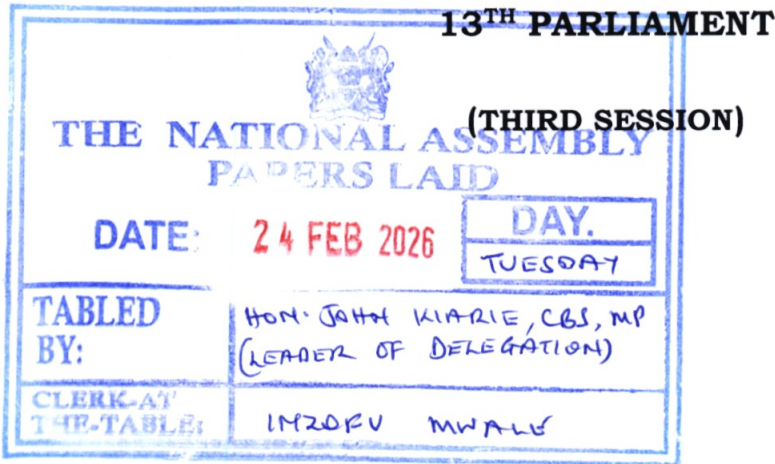 13TH PARLIAMENT
(THIRD SESSION)
THE NATIONAL ASSEMBLY
PAPERS LAID
DATE: 24 FEB 2026
DAY.
TUESDAY
TABLED BY:
HON. JOHN KIARIE, CBS, MP
(LEADER OF DELEGATION)
CLERK-AT THE-TABLE:
INZOFU MWALE